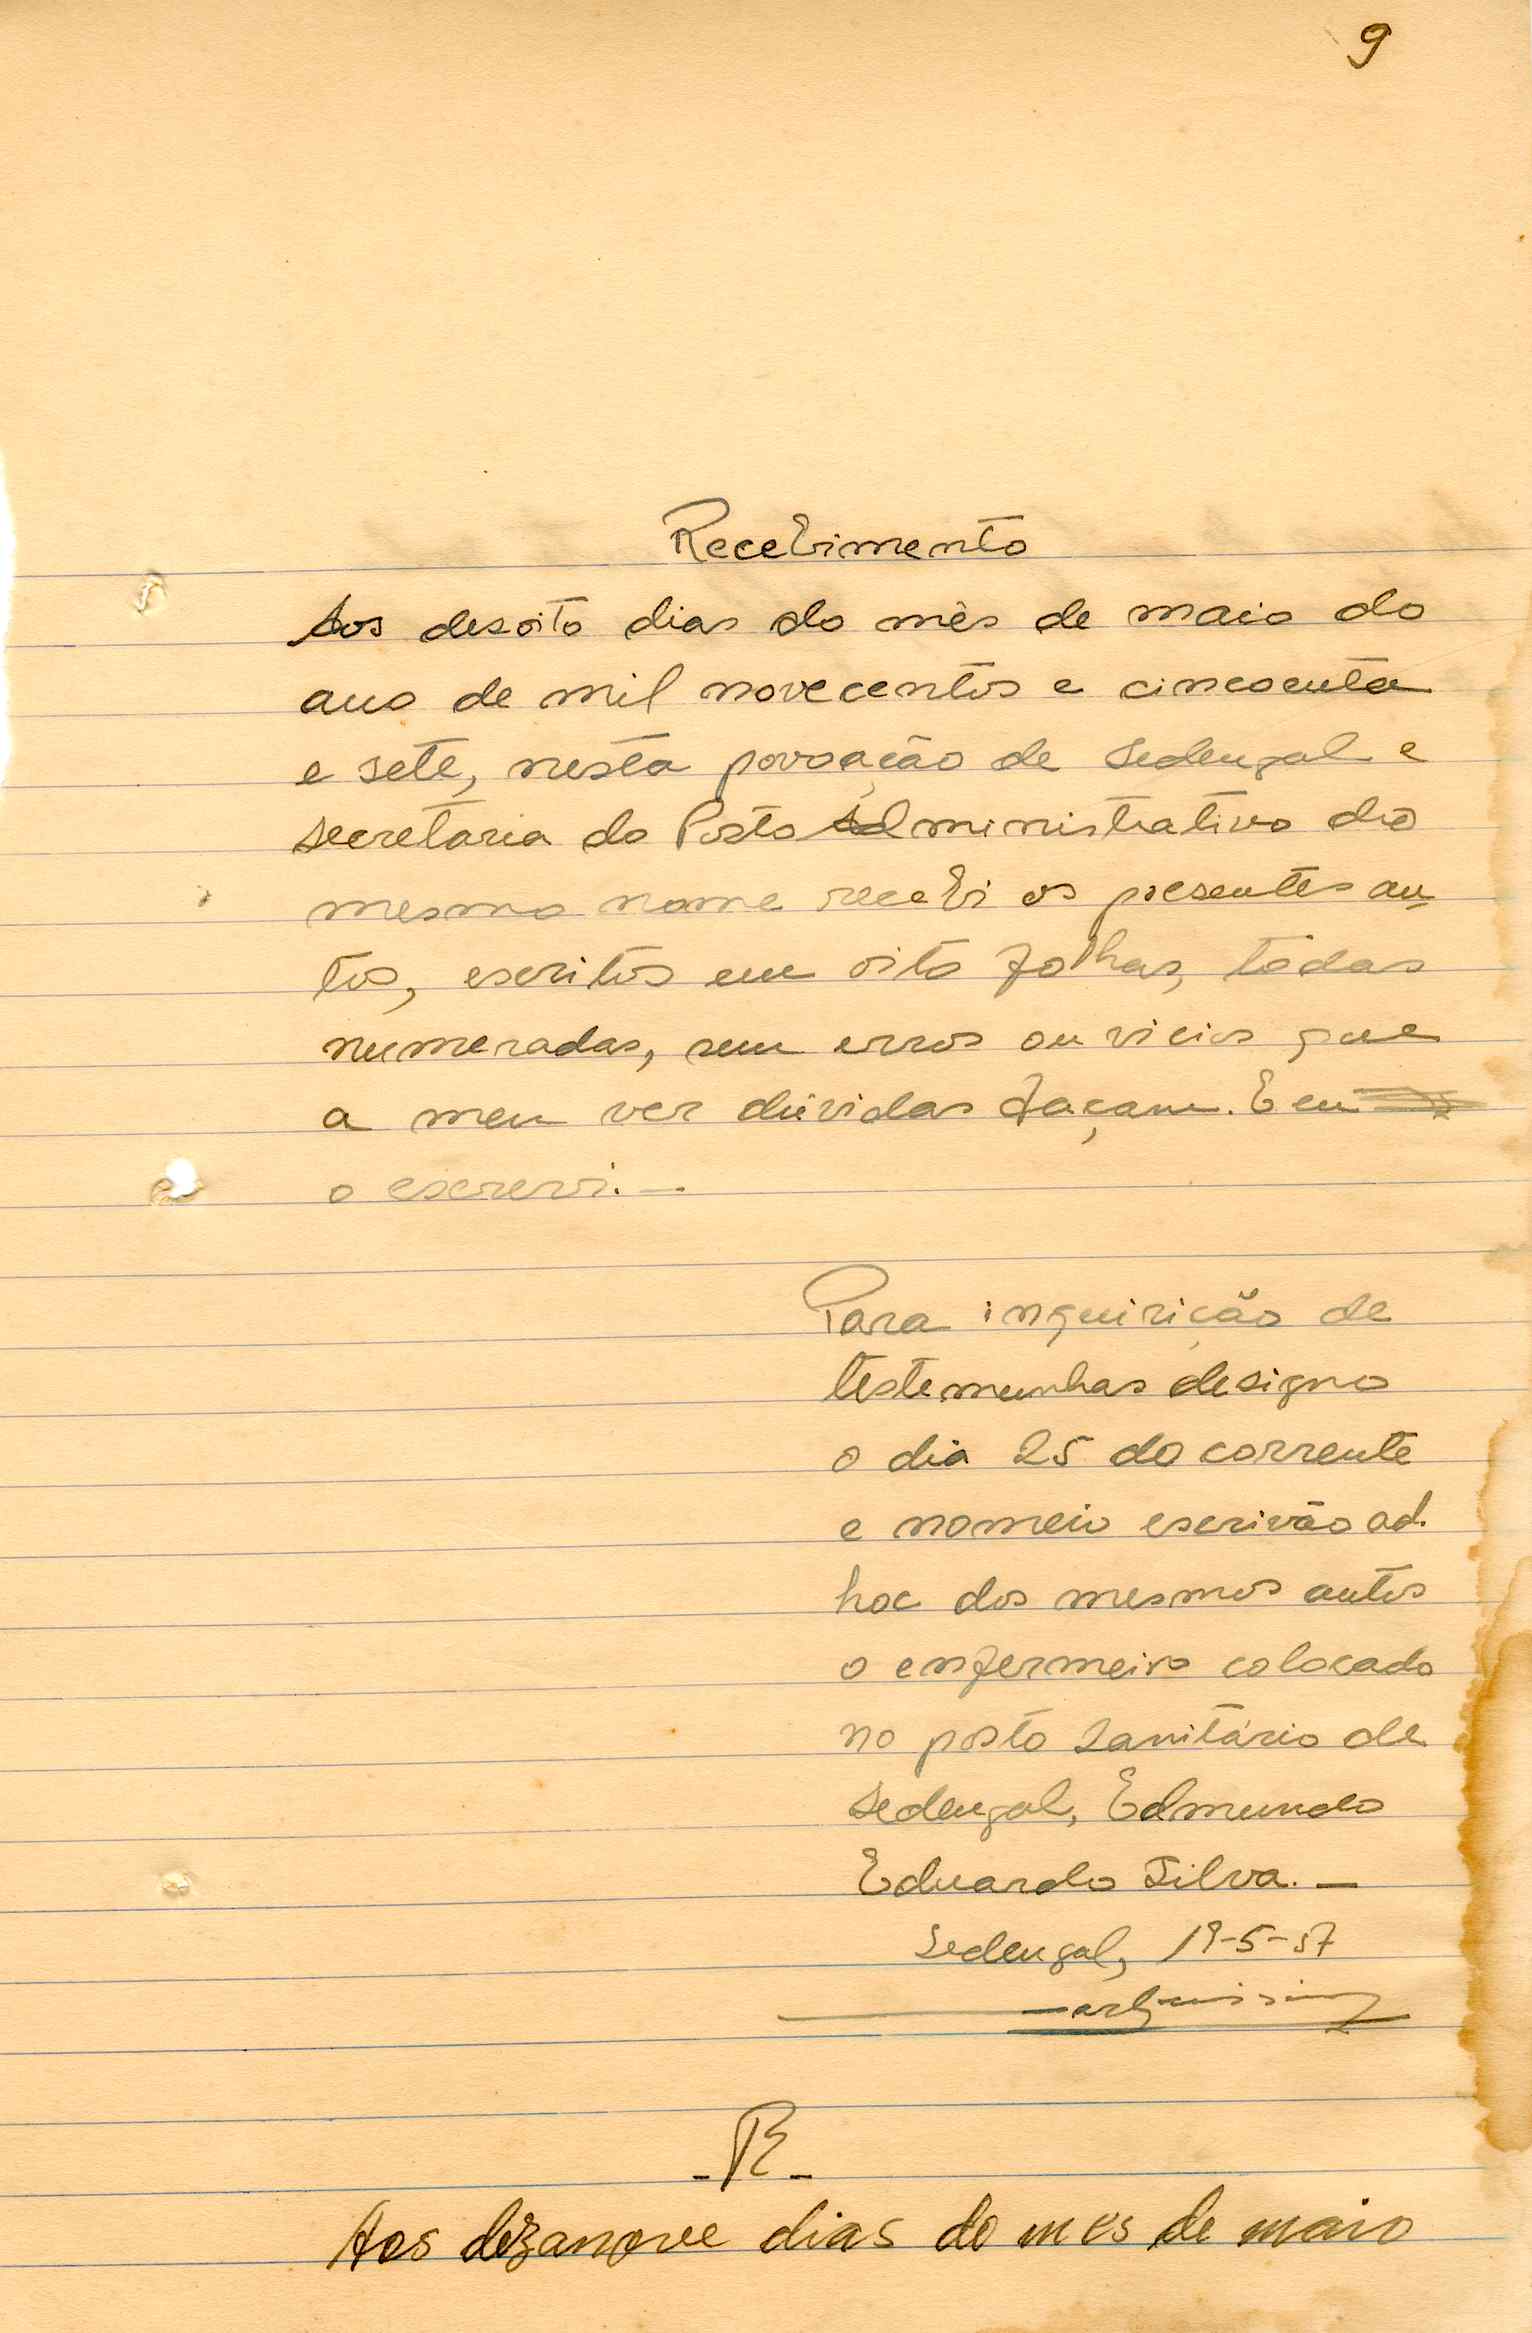 9
Recebimento
Aos desoito dias do mês de maio do
ano de mil novecentos e cincoenta
e sete, nesta povoação de Sedengal e
secretaria do Posto Administrativo do
mesmo nome recebi os presentes au-
tos, escritos em oito folhas, todas
numeradas, sem erros ou vicios que
a meu ver dúvidas façam. E eu
o escrevi. —
Para inquirição de
testemunhas designo
o dia 25 do corrente
e nomeio escrivão ad.
hoc dos mesmos autos
o enfermeiro colocado
no posto sanitário de
Sedengal, Edmundo
Eduardo Silva. —
Sedengal, 19-5-57
- R -
Aos dezanove dias do mes de maio